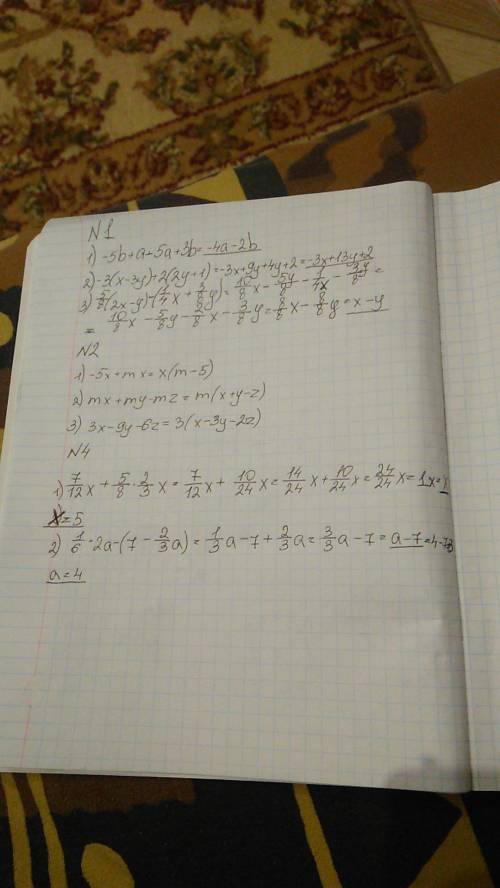 N1
1) -5b+a+5a+3b=-4a-2b
2) -3(x-3y)+2(2y+1)=-3x+9y+4y+2=-3x+13y+2
3) (2x-y)-(x+3/8y)=10/8x-5y/8-1/4x-3y/8=
=10/8x-5/8y-2/8x-3/8y=8/8x-8/8y=x-y
N2
1) -5x+mx=x(m-5)
2) mx+my-mz=m(x+y-z)
3) 3x-9y-6z=3(x-3y-2z)
N4
1) 7/12x+5/8·2/3x=7/12x+10/24x=14/24x+10/24x=24/24x=1x=x
x=5
2) 1/6·2a-(7-2/3a)=1/3a-7+2/3a=3/3a-7=a-7=4-7
a=4